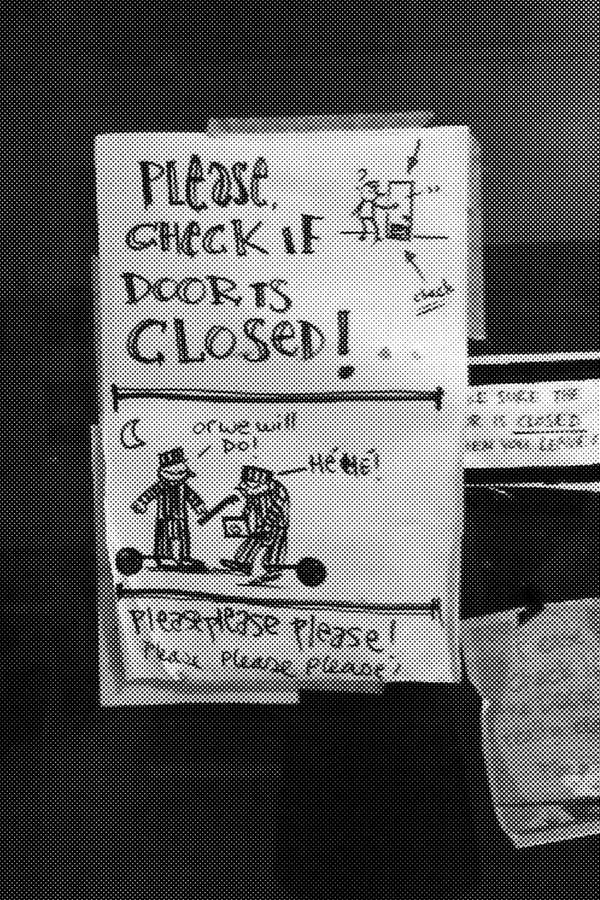 Please,
CHECK IF
DOOR IS
CLOSED!
check
or we will
DO!
HÉ HÉ!
Please please please!
Please please please!
SURE THE
IS CLOSED
YOU LEAVE